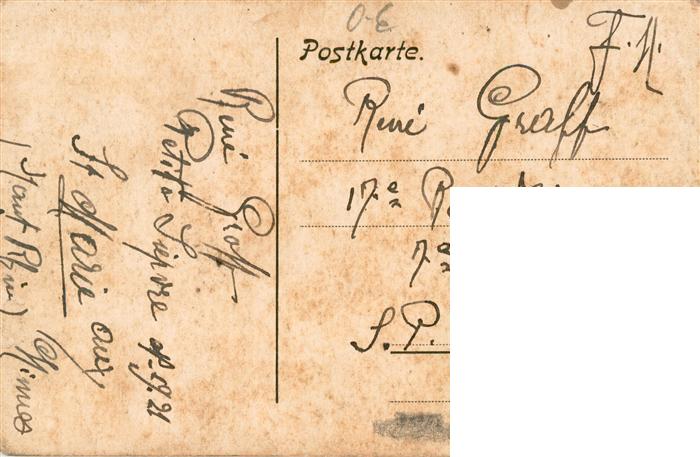 O-E
Postkarte.
F. M.
René Graff
17.e
7.e
S. P.
René Graff
Petite Lièpvre No 21
Ste Marie aux Mines
(Haut Rhin)